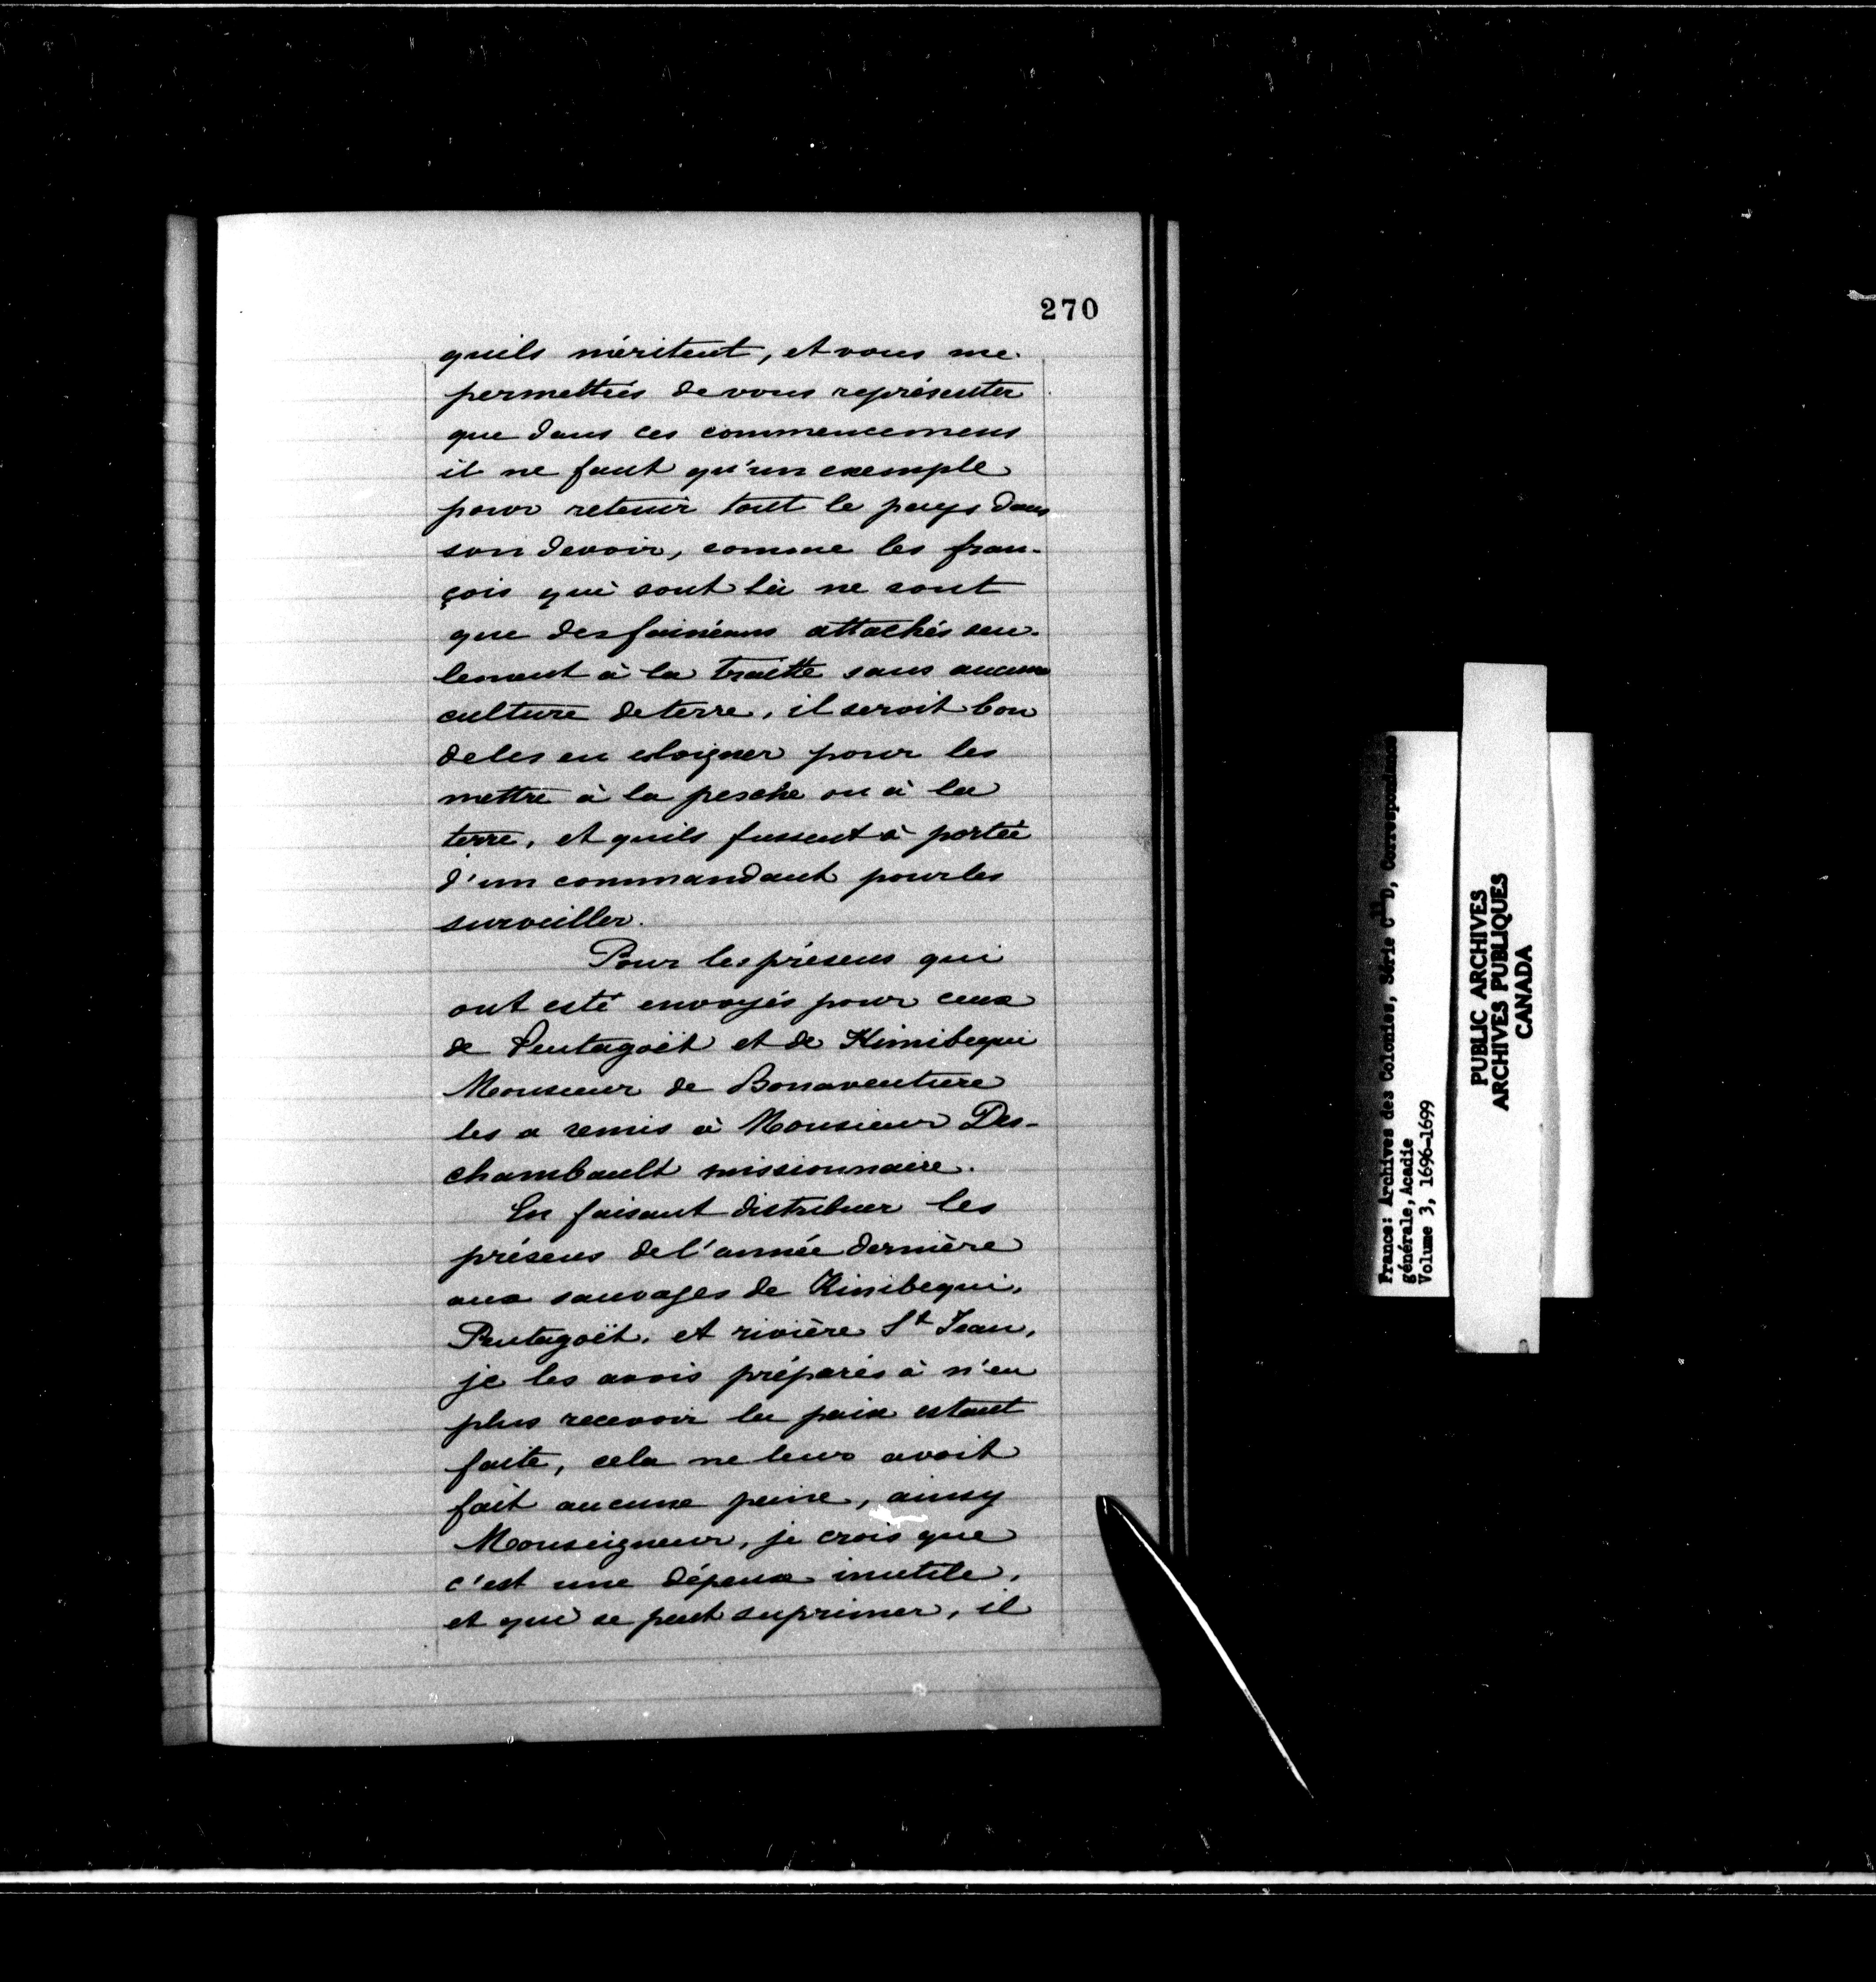 270
quils méritent, et vous me
permettrés de vous représenter
que dans ces commencemens
il ne faut qu'un exemple
pour retenir tout le pays dans
son devoir, comme les fran-
çois qui sont là ne sont
que des fainéans attachés seu-
lement à la traitte sans aucune
culture de terre, il seroit bon
de les en esloigner pour les
mettre à la pesche ou à la
terre, et quils fussent à portée
d'un commandant pour les
surveiller.
Pour les présens qui
ont esté envoyés pour ceux
de Pentagoët et de Kinibequi
Monsieur de Bonaventure
les a remis à Monsieur Des-
chambault missionnaire.
En faisant distribuer les
présens de l'année dernière
aux sauvages de Kinibequi,
Pentagoët, et rivière St Jean,
je les avois préparés à n'en
plus recevoir la paix estant
faite, cela ne leurs avoit
fait aucune peine, ainsy
Monseigneur, je crois que
c'est une dépense inutile,
et qui se peut suprimer, il
France: Archives des Colonies, Série C11D, Correspondance
générale, Acadie
Volume 3, 1696-1699
PUBLIC ARCHIVES
ARCHIVES PUBLIQUES
CANADA